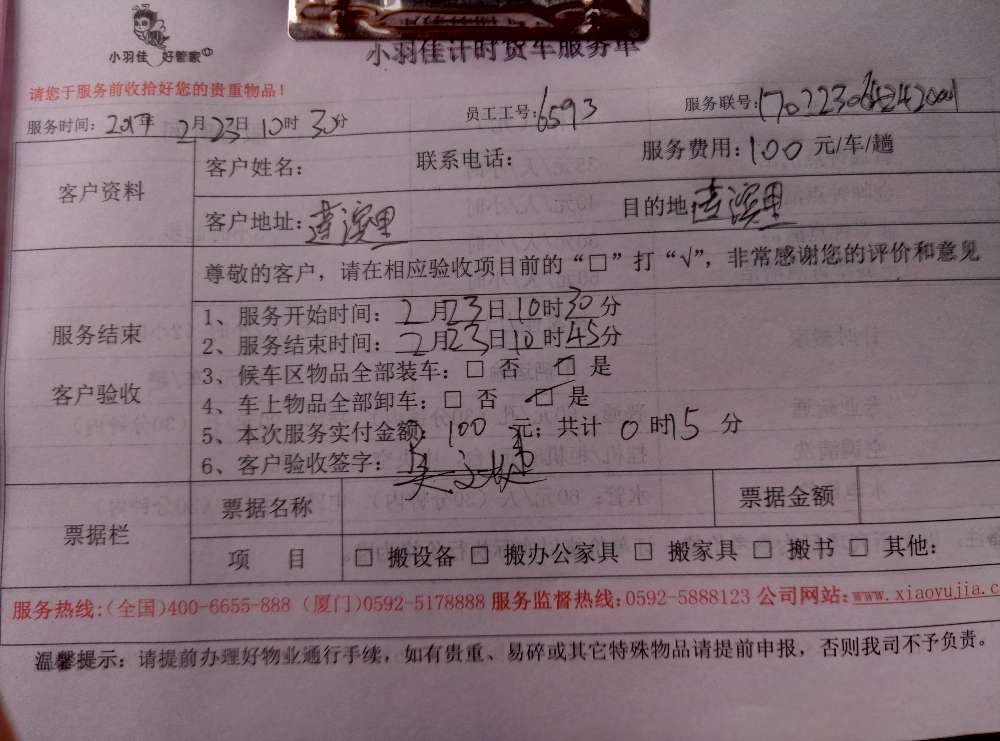 小羽佳 好管家
小羽佳计时货车服务单
请您于服务前收拾好您的贵重物品!
服务时间: 2017年 2月23日10时30分 员工工号:6593 服务联号:
客户资料
客户姓名: 联系电话: 服务费用:100 元/车/趟
客户地址: 滨里 目的地 滨里
尊敬的客户，请在相应验收项目前的“□”打“√”，非常感谢您的评价和意见
服务结束
客户验收
1、服务开始时间: 2月23日10时30分
2、服务结束时间: 2月23日10时45分
3、候车区物品全部装车:□ 否 □ 是
4、车上物品全部卸车:□ 否 □ 是
5、本次服务实付金额: 100 元; 共计 0 时15 分
6、客户验收签字:
票据栏
票据名称 票据金额
项 目 □ 搬设备 □ 搬办公家具 □ 搬家具 □ 搬书 □ 其他:
服务热线:(全国)400-6655-888 (厦门)0592-5178888 服务监督热线:0592-5888123 公司网站:www.xiaoyujia.c
温馨提示: 请提前办理好物业通行手续，如有贵重、易碎或其它特殊物品请提前申报，否则我司不予负责。